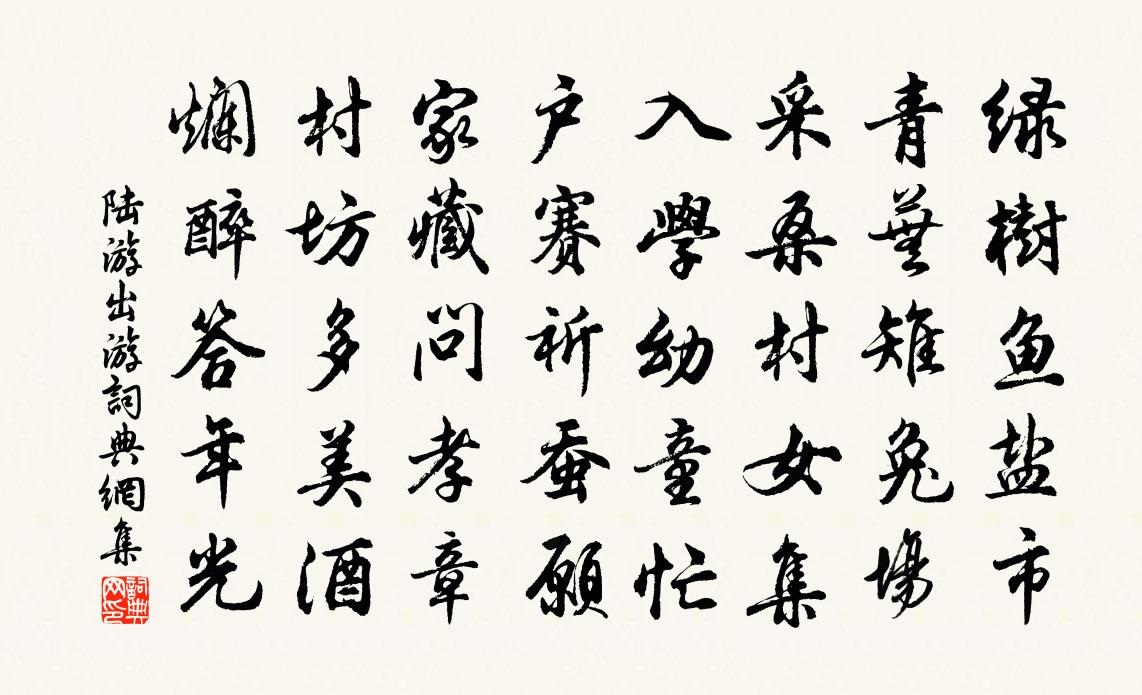 绿樹魚盐市
青蕪雉兔場
采桑村女集
入學幼童忙
户賽祈蚕願
家藏問孝章
村坊多美酒
爛醉答年光
陆游出游詞典網集
詞典網印